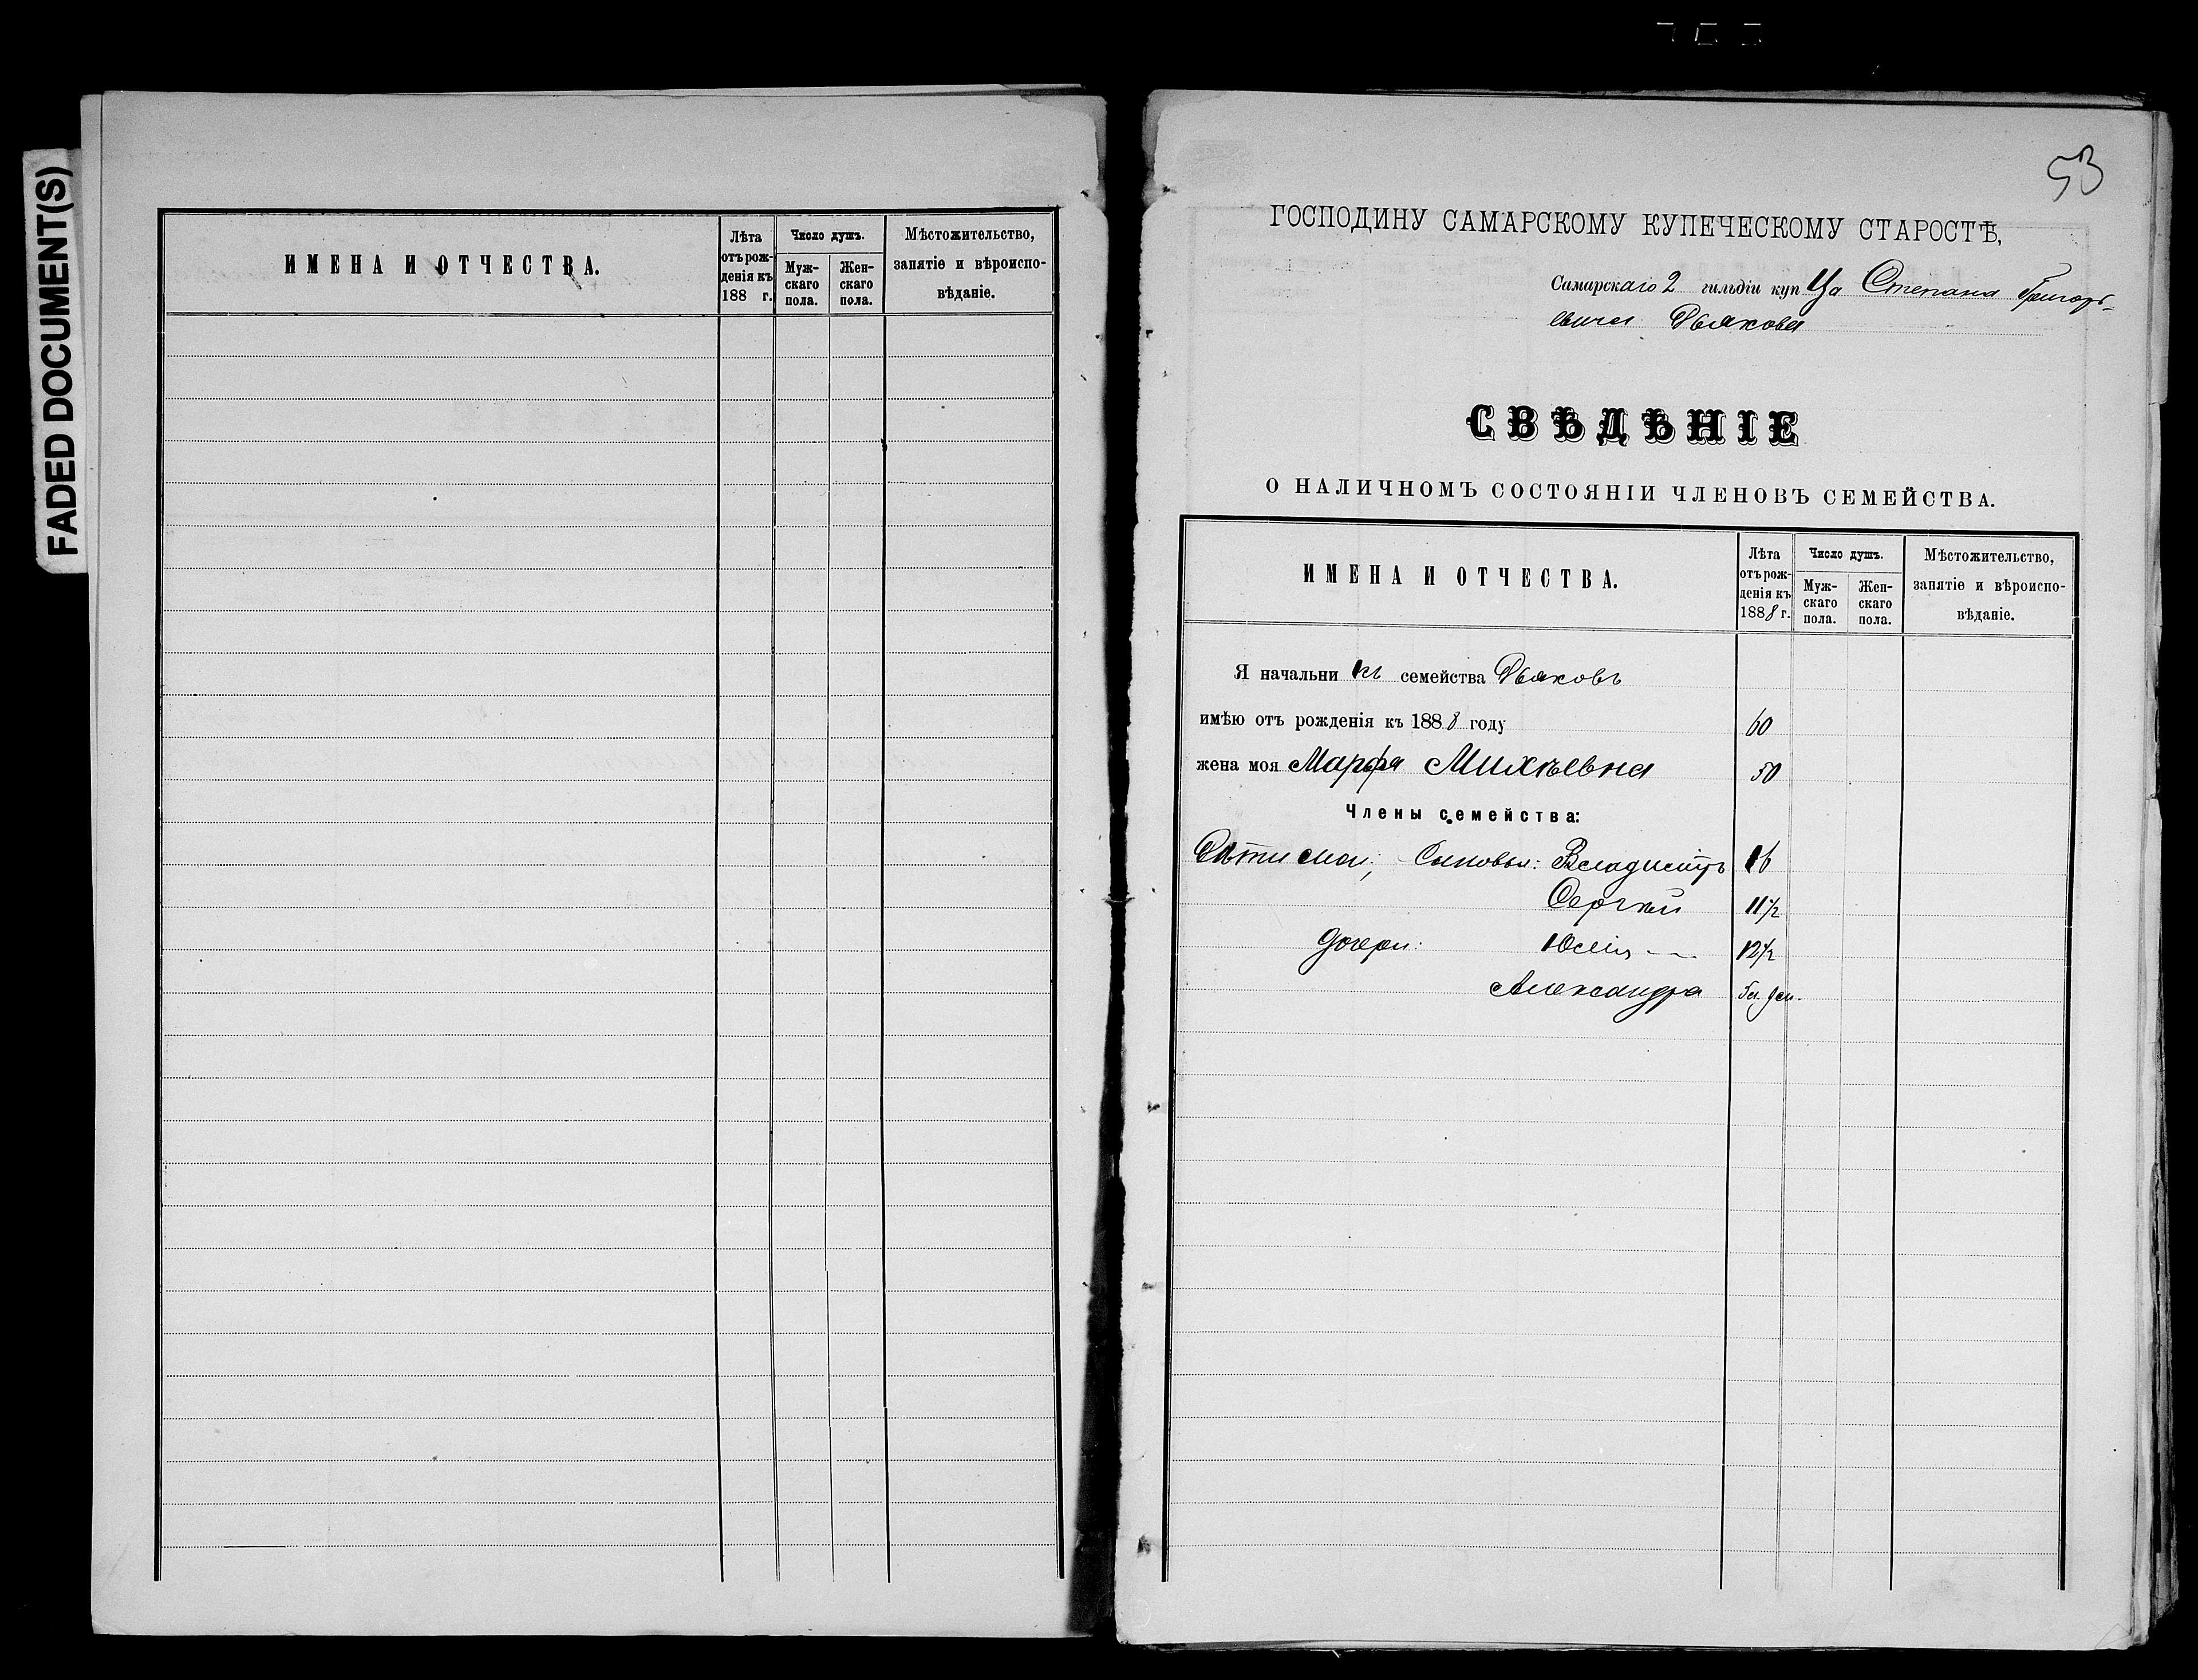 FADED DOCUMENT(S)
ИМЕНА И ОТЧЕСТВА.
Лѣта отъ рожденія къ 188 г.
Число душъ.
Мужскаго пола.
Женскаго пола.
Мѣстожительство, занятіе и вѣроисповѣданіе.
53
ГОСПОДИНУ САМАРСКОМУ КУПЕЧЕСКОМУ СТАРОСТѢ,
Самарскаго 2 гильдіи купца Степана Григорь-
евича Дьякова
СВѢДѢНІЕ
О НАЛИЧНОМЪ СОСТОЯНІИ ЧЛЕНОВЪ СЕМЕЙСТВА.
ИМЕНА И ОТЧЕСТВА.
Лѣта отъ рожденія къ 1888 г.
Число душъ.
Мужскаго пола.
Женскаго пола.
Мѣстожительство, занятіе и вѣроисповѣданіе.
Я начальникъ семейства Дьяковъ
имѣю отъ рожденія къ 1888 году 60
жена моя Марфа Михѣевна 50
Члены семейства:
Дѣти мои; Сыновья: Владиміръ 16
Сергѣй 11 1/2
Дочери: Юлія 12 1/2
Александра 5 л. 9 м.